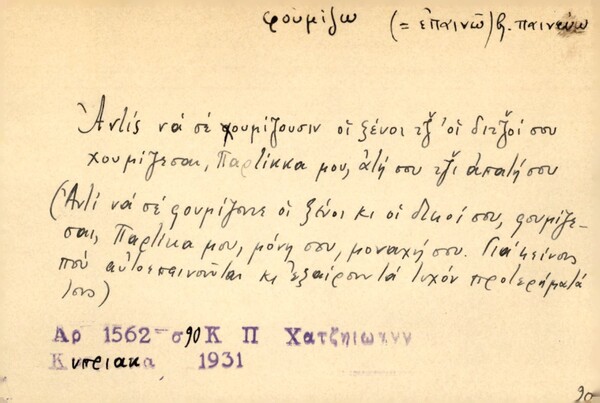 φουμίζω (= ἐπαινῶ) βλ. παινεύω
Ἀντίς νά σέ φουμίζουσιν οἱ ξένοι τζ̌' οἱ διτζ̌οί σου
χουμίζεσαι, Παρτίκκα μου, ἀτή σου τζ̌ι ἀπατή σου
(Ἀντί νά σέ φουμίζουνε οἱ ξένοι κι οἱ δικοί σου, φουμίζε-
σαι, Παρτίκα μου, μόνη σου, μοναχή σου. Γιά κείνους
πού αὐτοεπαινοῦνται κι ἐξαίρουν τά τυχόν προτερήματά
τους)
Αρ 1562 σ 90 Κ Π Χατζηιωανν
Κυπριακα 1931
90